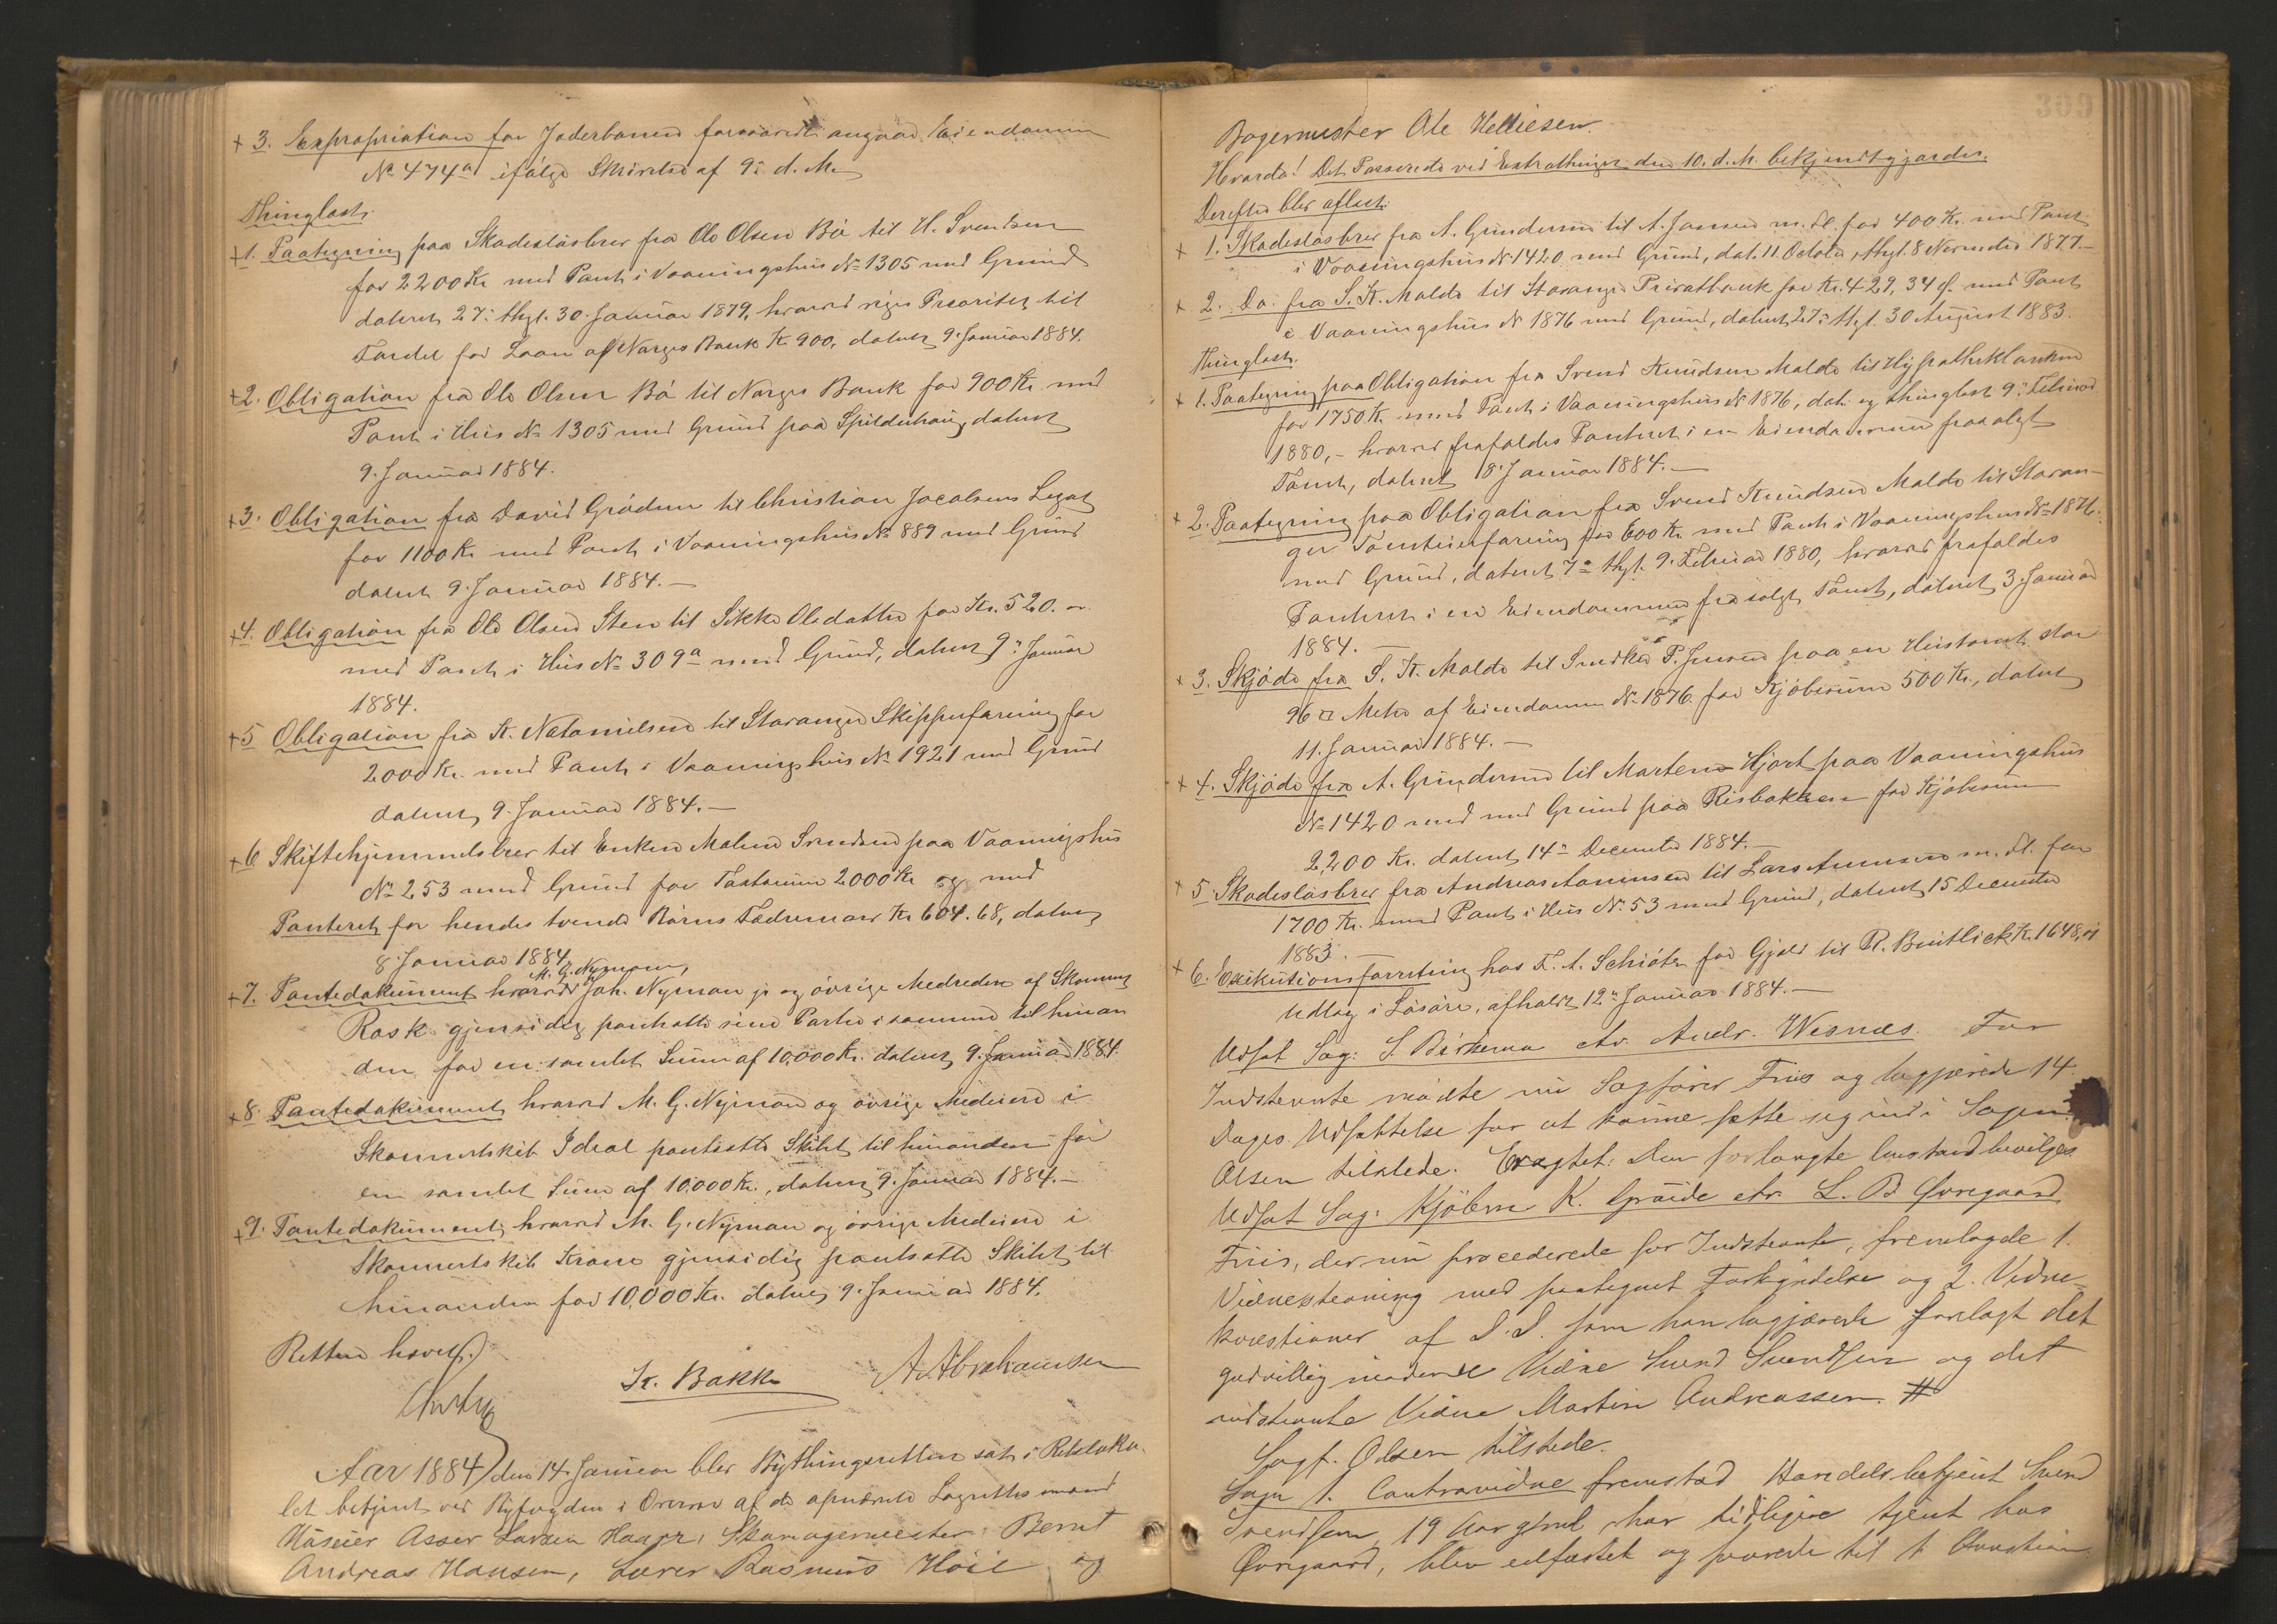 + 3. Expropriation for Jæderbanen forsaavidt angaar Eiendommen
No 474a ifølge Skrivelse af 9. d. M.
Thinglæst:
+1. Paategning paa Skadesløsbrev fra Ole Olsen Bø til H. Svendsen
for 2200 Kr med Pant i Vaaningshus No 1305 med Grund
dateret 27. thgl. 30. Januar 1879, hvorved viges Prioritet til
Fordel for Laan af Norges Bank Kr 900, dateret 9. Januar 1884.
+2. Obligation fra Ole Olsen Bø til Norges Bank for 900 Kr. med
Pant i Hus No 1305 med Grund paa Spilderhaug, dateret
9. Januar 1884.
+3. Obligation fra David Grödem til Christian Jacobsens Legat
for 1100 Kr med Pant i Vaaningshus No 889 med Grund
dateret 9. Januar 1884.—
+4. Obligation fra Ole Olsen Sten til Sikke Olsdatter for Kr. 520.
med Pant i Hus No 309a med Grund, dateret 9. Januar
1884.
+5 Obligation fra K. Natanielsen til Stavanger Skipperforening for
2000 Kr. med Pant i Vaaningshus No 1921 med Grund
dateret 9. Januar 1884.—
+6 Skiftehjemmelsbrev til Enken Malene Svendsen paa Vaaningshus
No 253 med Grund for Taxtsum 2000 Kr og med
Panteret for hendes tvende Børns Fædrenearv Kr 604.68, dateret
8. Januar 1884
M. G. Nyman,
+7. Pantedokument hvorved Joh. Nyman jr og øvrige Medredere af Skonnert
Rask gjensidig pantsatte sine Parter i samme til hinan
den for en samlet Sum af 10,000 Kr. dateret 9. Januar 1884.
+8. Pantedokument hvorved M. G. Nyman og øvrige Medeiere i
Skonnertskib Ideal pantsatte Skibet til hinanden for
en samlet Sum af 10.000 Kr., dateret 9. Januar 1884.—
+9. Pantedokument, hvorved M. G. Nyman og øvrige Medeiere i
Skonnertskib Krone gjensidig pantsatte Skibet til
hinanden for 10,000 Kr. dateret 9. Januar 1884.
Retten hævet.
K. Bakke A. Abrahamsen
Aar 1884 den 14. Januar blev Bythingsretten sat i Retsloka-
let betjent ved Byfogden i Overvær af de opnævnte Lagrettesmænd
Huseier Asser Larsen Haaer, Skomagermester Bernt
Andreas Hansen, Lærer Rasmus Höie og
309
Bagermester Ole Helliesen.
Hvorda! Det Passerede ved Extrathinget den 10. d. M. bekjendtgjordes.
Derefter blev aflæst:
+ 1. Skadesløsbrev fra A. Gundersen til A. Jansen m. fl. for 400 Kr. med Pant
i Vaaningshus No 1420 med Grund, dat. 11. October, thgl. 8 November 1877.—
+ 2. Do. fra S. K. Malde til Stavanger Privatbank for Kr. 429,34 ø. med Pant
i Vaaningshus No 1876 med Grund, dateret 27. thgl. 30 August 1883.
Thinglæst.
+ 1. Paategning paa Obligation fra Svend Knudsen Malde til Hypothekbanken
for 1750 Kr. med Pant i Vaaningshus No 1876, dat. og thinglæst 9. Februar
1880,- hvorved frafaldes Panteret i en Eiendommen frasolgt
Tomt, dateret 8 Januar 1884.—
+ 2. Paategning paa Obligation fra Svend Knudsen Malde til Stavan-
ger Tomteierforening for 600 Kr. med Pant i Vaaningshus No 1876.
med Grund, dateret 7. thgl. 9. Februar 1880, hvorved frafaldes
Panteret i en Eiendommen frasolgt Tomt, dateret 3. Januar
1884.—
+ 3. Skjøde fra S. K. Malde til Snedker P. Jensen paa en Hustomt stor
96 □ Meter af Eiendommen No 1876 for Kjøbesum 500 Kr., dateret
11. Januar 1884.—
+ 4. Skjøde fra A. Gundersen til Marten Hjort paa Vaaningshus
No 1420 med med Grund paa Risbakken for Kjøbesum
2,200 Kr. dateret 14. December 1884.—
+ 5. Skadesløsbrev fra Andreas Aanensen til Lars Aanensen m. fl. for
1700 Kr. med Pant i Hus No 53 med Grund, dateret 15 December
1883.—
+ 6. Exekutionsforretning hos F. A. Schiøtz for Gjæld til R. Kr. 1648,
Udlæg i Løsøre, afholdt 12. Januar 1884.—
Udsat Sag: S. ctr. Andr. Wesnes. For
Indstevnte mødte nu Sagfører Friis og begjærede 14
Dages Udsættelse for at kunne sætte sig ind i Sagen.
Olsen tilstede. Eragtet: Den forlangte Anstand bevilges
Udsat Sag: Kjøbm K. Gröide ctr. L. B Øvregaard
Friis, der nu procederede for Indstevnte, fremlagde 1.
Vidnestevning med paategnet Forkyndelse og 2. Vidne-
kvæstioner af D. D. som han begjærede forelagt det
godvillig mødende Vidne Svend Svendsen og det
indstevnte Vidne Martin Andreassen. #
Sagf. Olsen tilstede.
Som 1. Contravidne fremstod Handelsbetjent Svend
Svendsen, 19 Aar gml, har tidligere tjent hos
Øvregaard, blev edfæstet og svarede til 1 Qvæstion